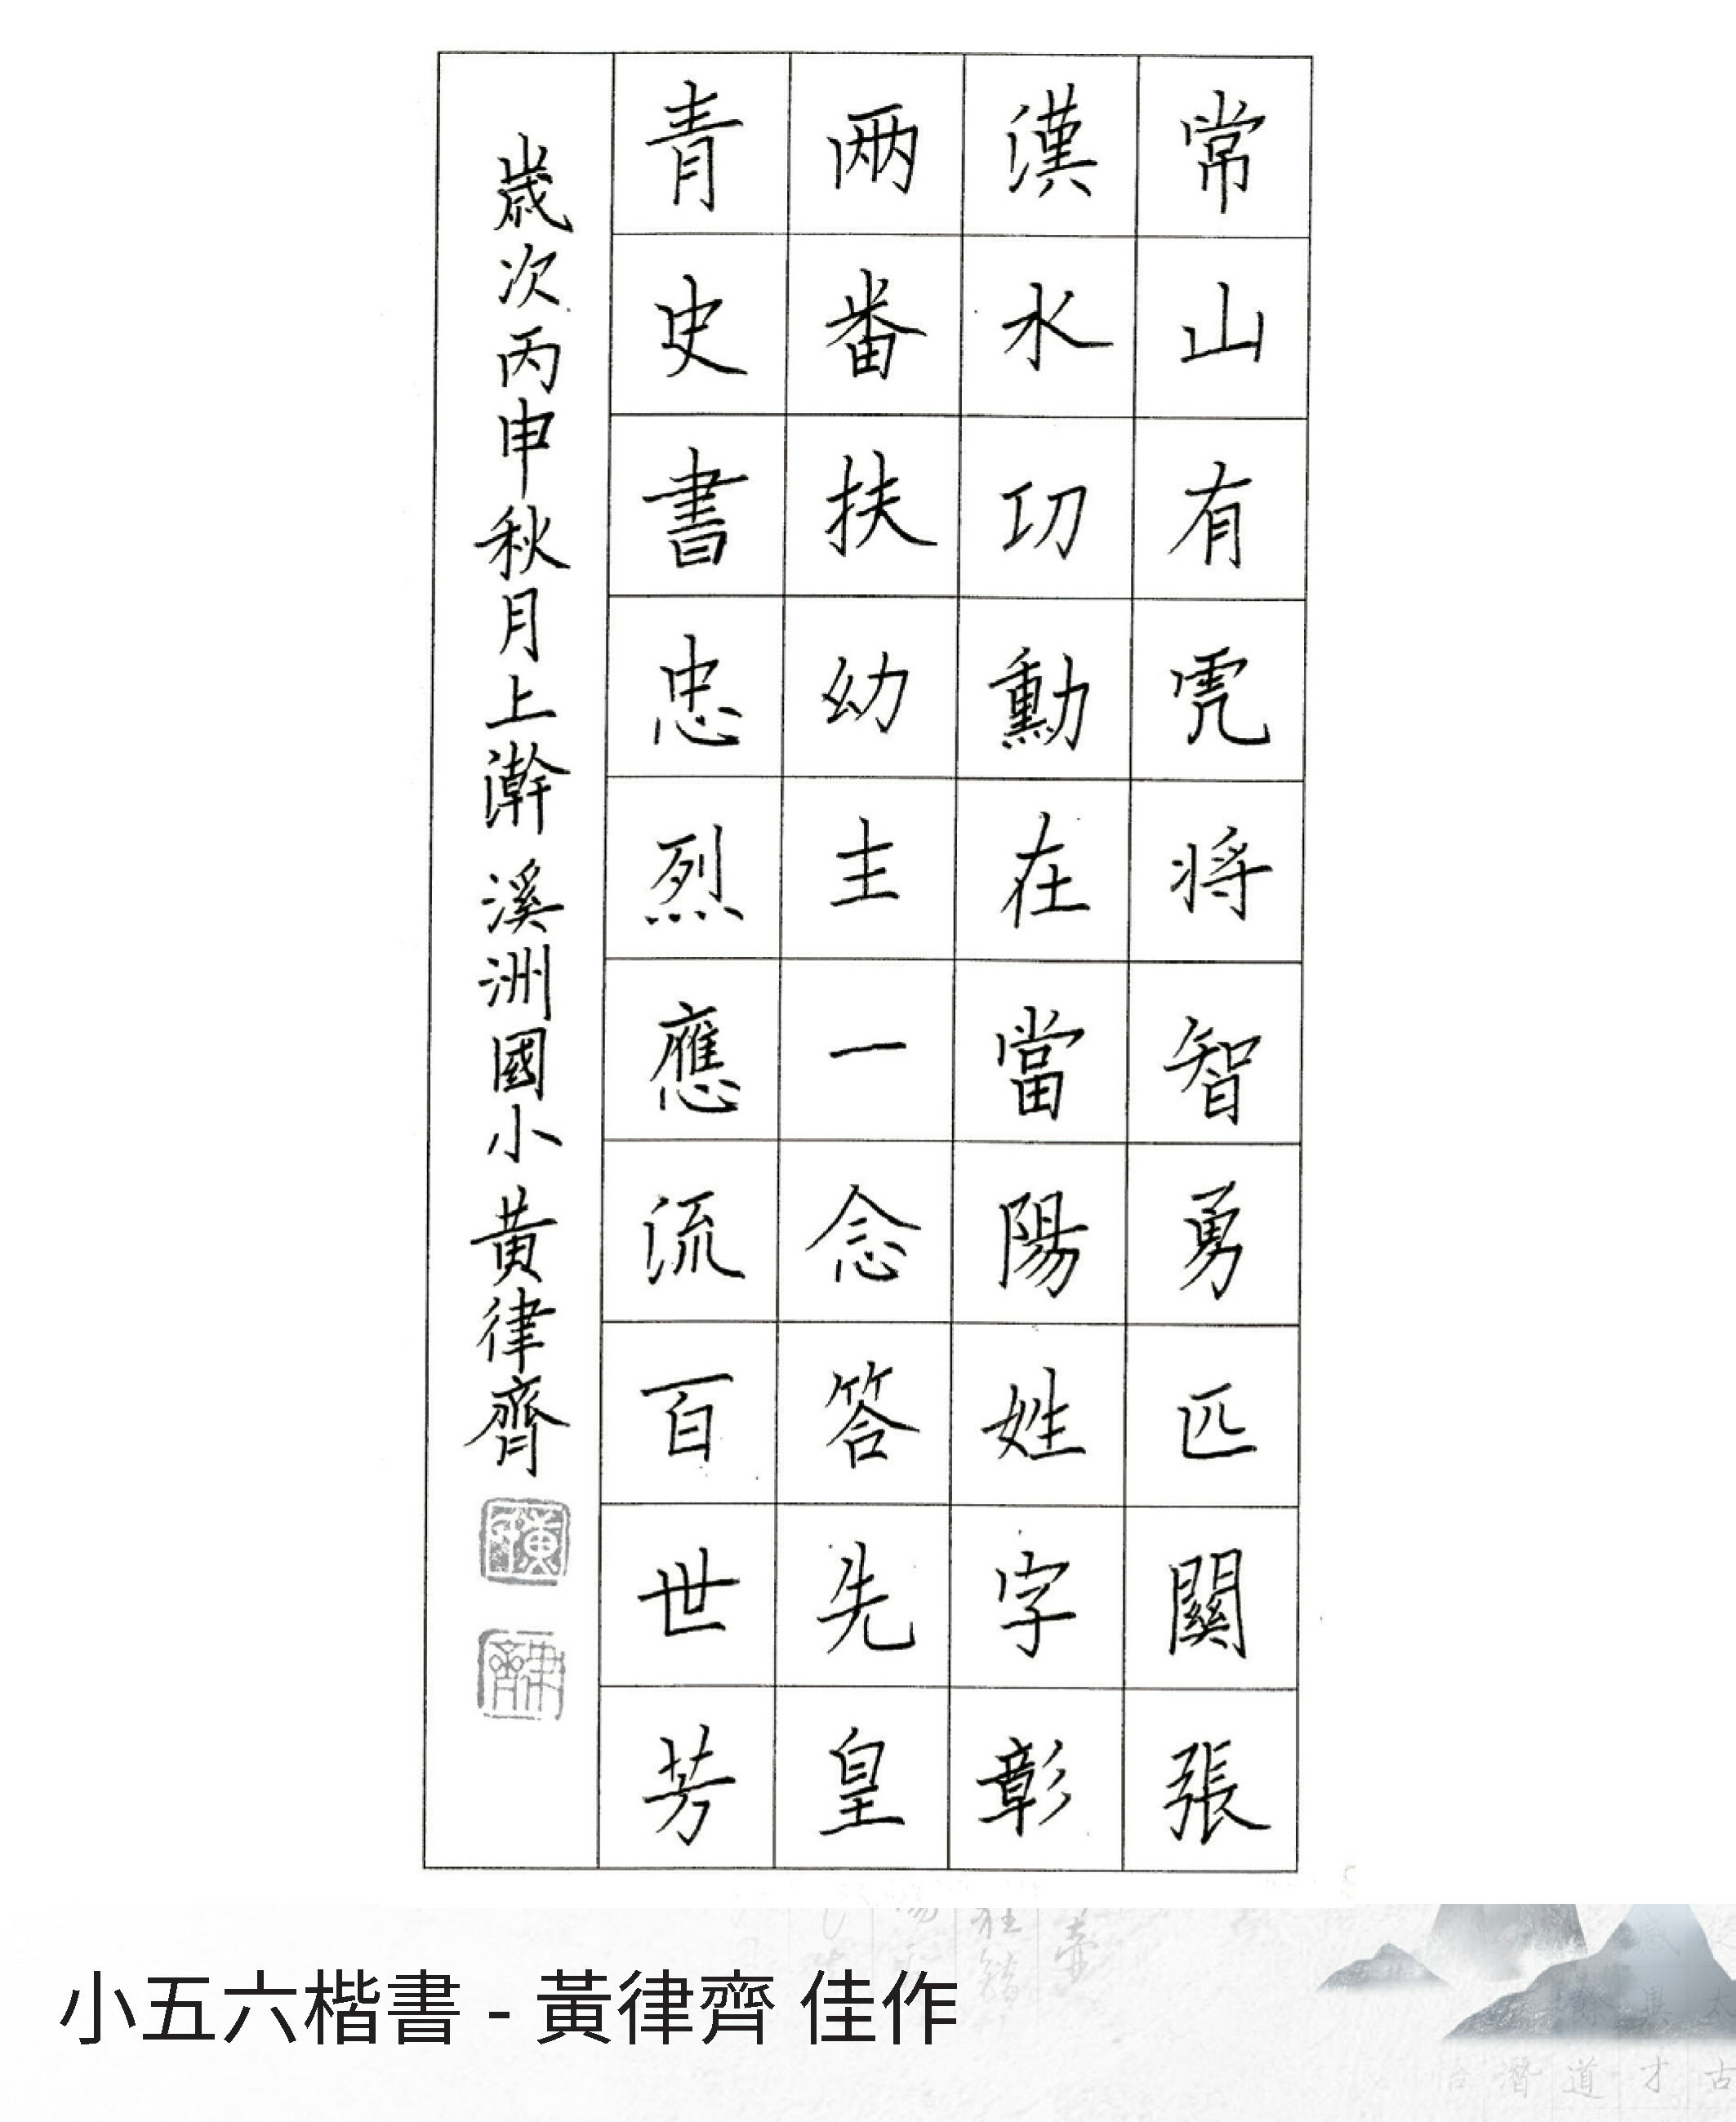 常山有虎將智勇匹關張
漢水功勳在當陽姓字彰
兩番扶幼主一念答先皇
青史書忠烈應流百世芳
歲次丙申秋月上澣 溪洲國小 黃律齊
小五六楷書 - 黃律齊 佳作